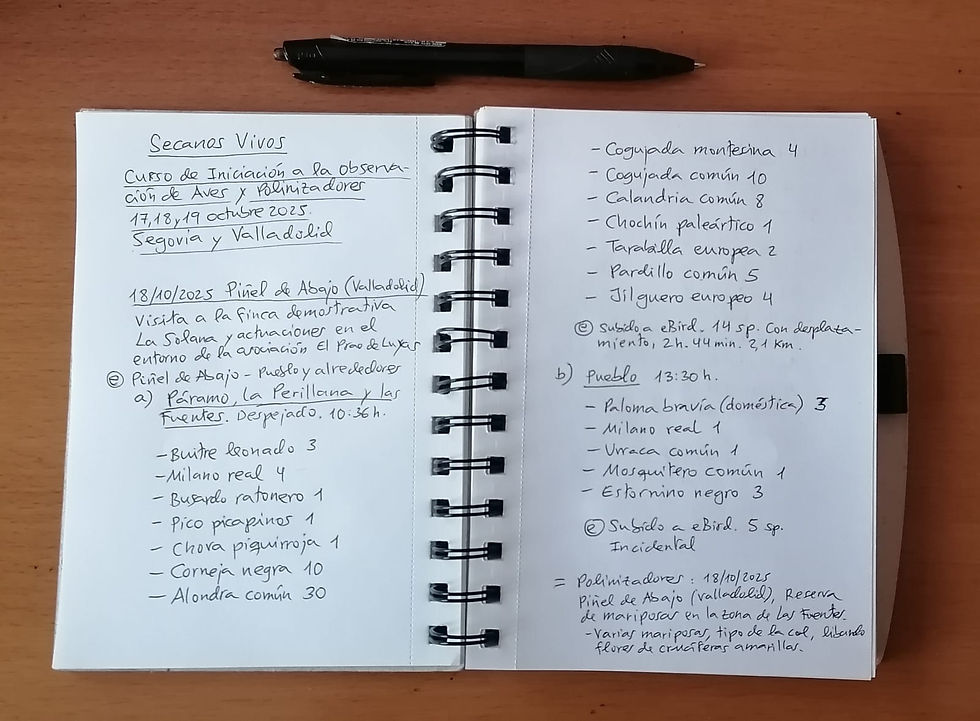 Secanos Vivos
Curso de Iniciación a la Observa-
ción de Aves y Polinizadores
17,18,y 19 octubre 2025.
Segovia y Valladolid
18/10/2025 Piñel de Abajo (Valladolid)
Visita a la finca demostrativa
La Solana y actuaciones en el
entorno de la asociación El Prao de Luyas
ⓔ Piñel de Abajo - Pueblo y alrededores
a) Páramo, la Perillana y las
Fuentes. Despejado. 10:36h.
- Buitre leonado 3
- Milano real 4
- Busardo ratonero 1
- Pico picapinos 1
- Chova piquirroja 1
- Corneja negra 10
- Alondra común 30
- Cogujada montesina 4
- Cogujada común 10
- Calandria común 8
- Chochín paleártico 1
- Tarabilla europea 2
- Pardillo común 5
- Jilguero europeo 4
ⓔ Subido a eBird. 14 sp. Con desplaza-
miento, 2h. 44 min. 2,1 km.
b) Pueblo 13:30 h.
- Paloma bravía (doméstica) 3
- Milano real 1
- Urraca común 1
- Mosquitero común 1
- Estornino negro 3
ⓔ Subido a eBird. 5 sp.
Incidental
= Polinizadores : 18/10/2025
Piñel de Abajo (Valladolid), Reserva
de mariposas en la zona de Las Fuentes.
- Varias mariposas, tipo de la col, libando
flores de crucíferas amarillas.